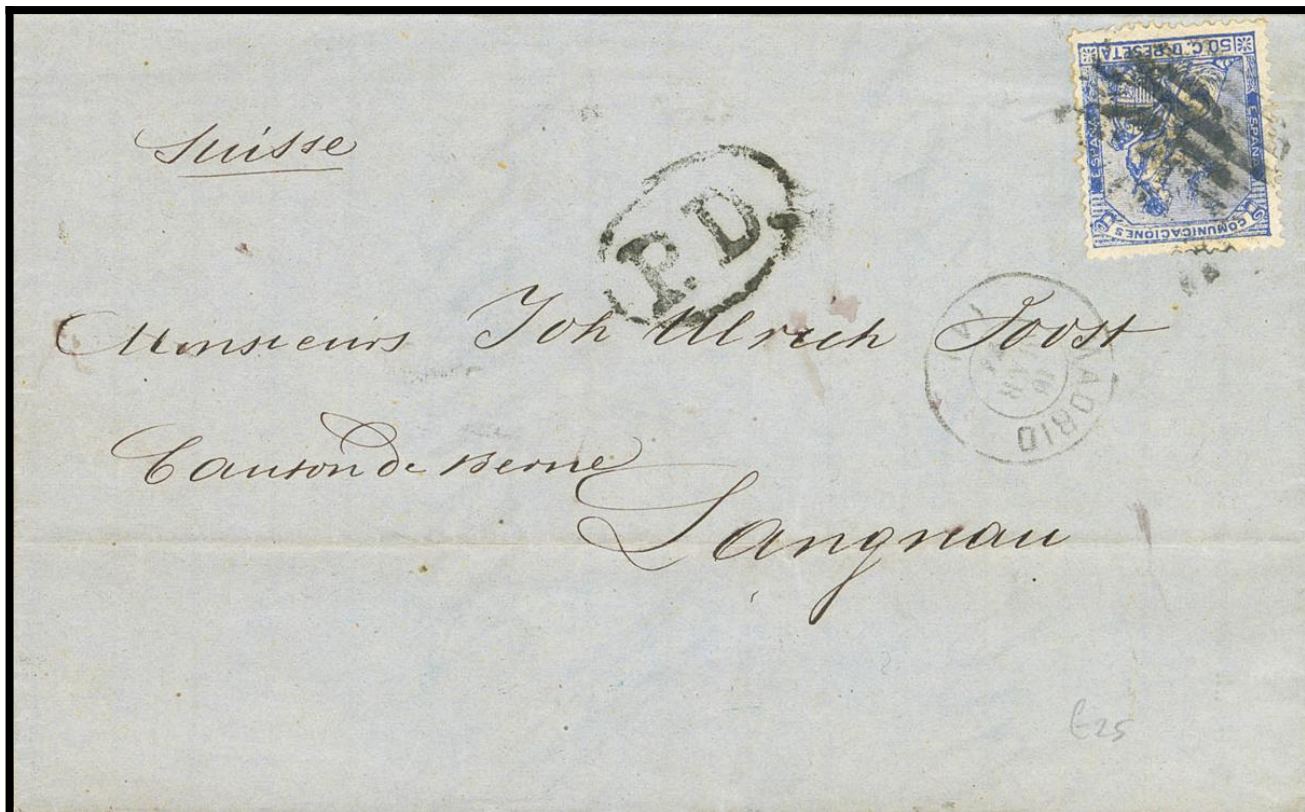 50 C. D PESETA
ESPAÑA
ESPAÑA
COMUNICACIONES
Suisse
P. D.
Monsieurs Joh Ulrich Joost
MADRID
Canton de Berne
Langnau
E25